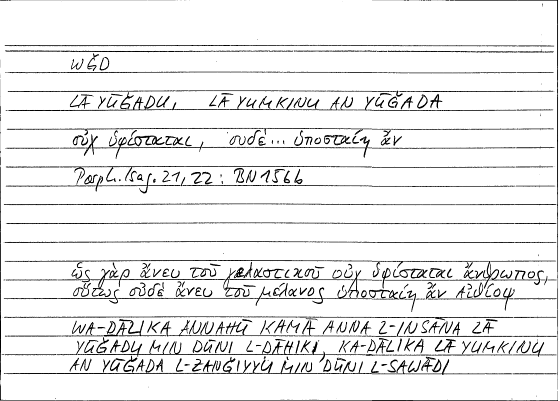 WǦD
LĀ YŪǦADU, LĀ YUMKINU AN YŪǦADA
οὐχ ὑφίσταται, οὐδὲ... ὑποσταίη ἄν
Porph. Isag. 21, 22 : BN 1566
ὡς γὰρ ἄνευ τοῦ γελαστικοῦ οὐχ ὑφίσταται ἄνθρωπος,
οὕτως οὐδὲ ἄνευ τοῦ μέλανος ὑποσταίη ἂν Αἰθίοψ
WA-ḎĀLIKA ANNAHŪ KAMĀ ANNA L-INSĀNA LĀ
YŪǦADU MIN DŪNI L-ḌAḤIKI, KA-ḎĀLIKA LĀ YUMKINU
AN YŪǦADA L-ZANǦIYYU MIN DŪNI L-SAWĀDI